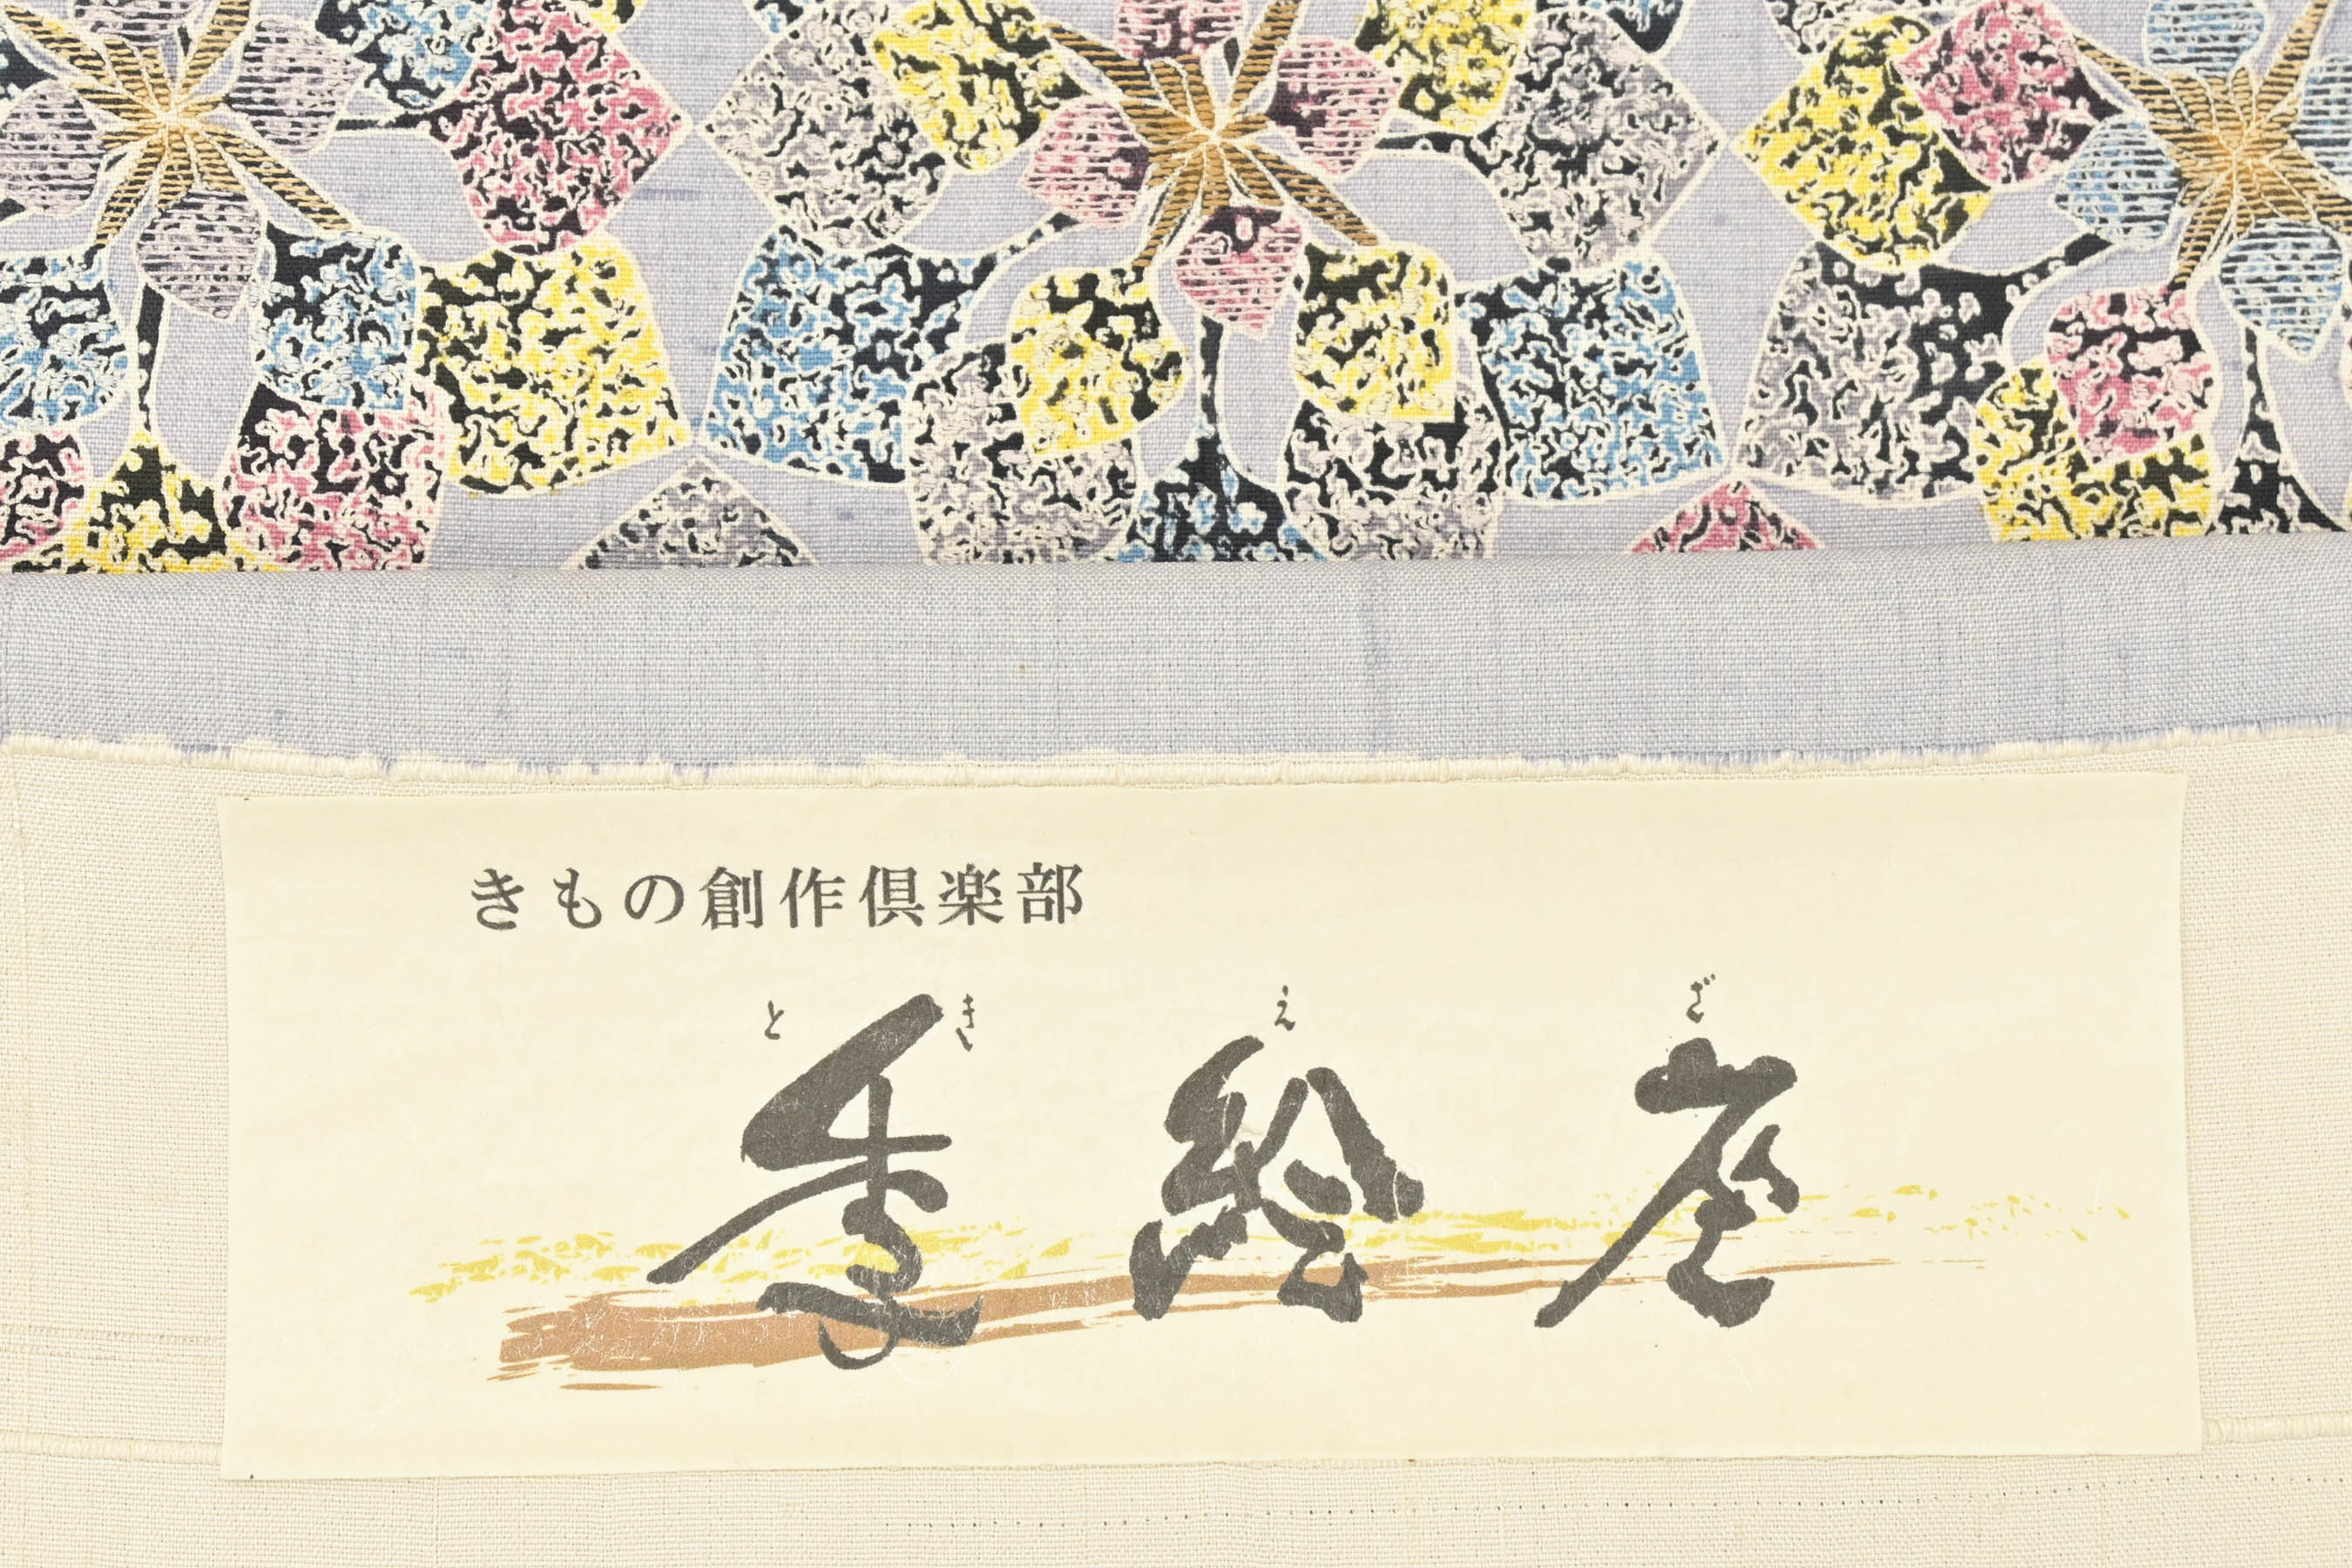 きもの創作倶楽部
とき え ざ
季絵座